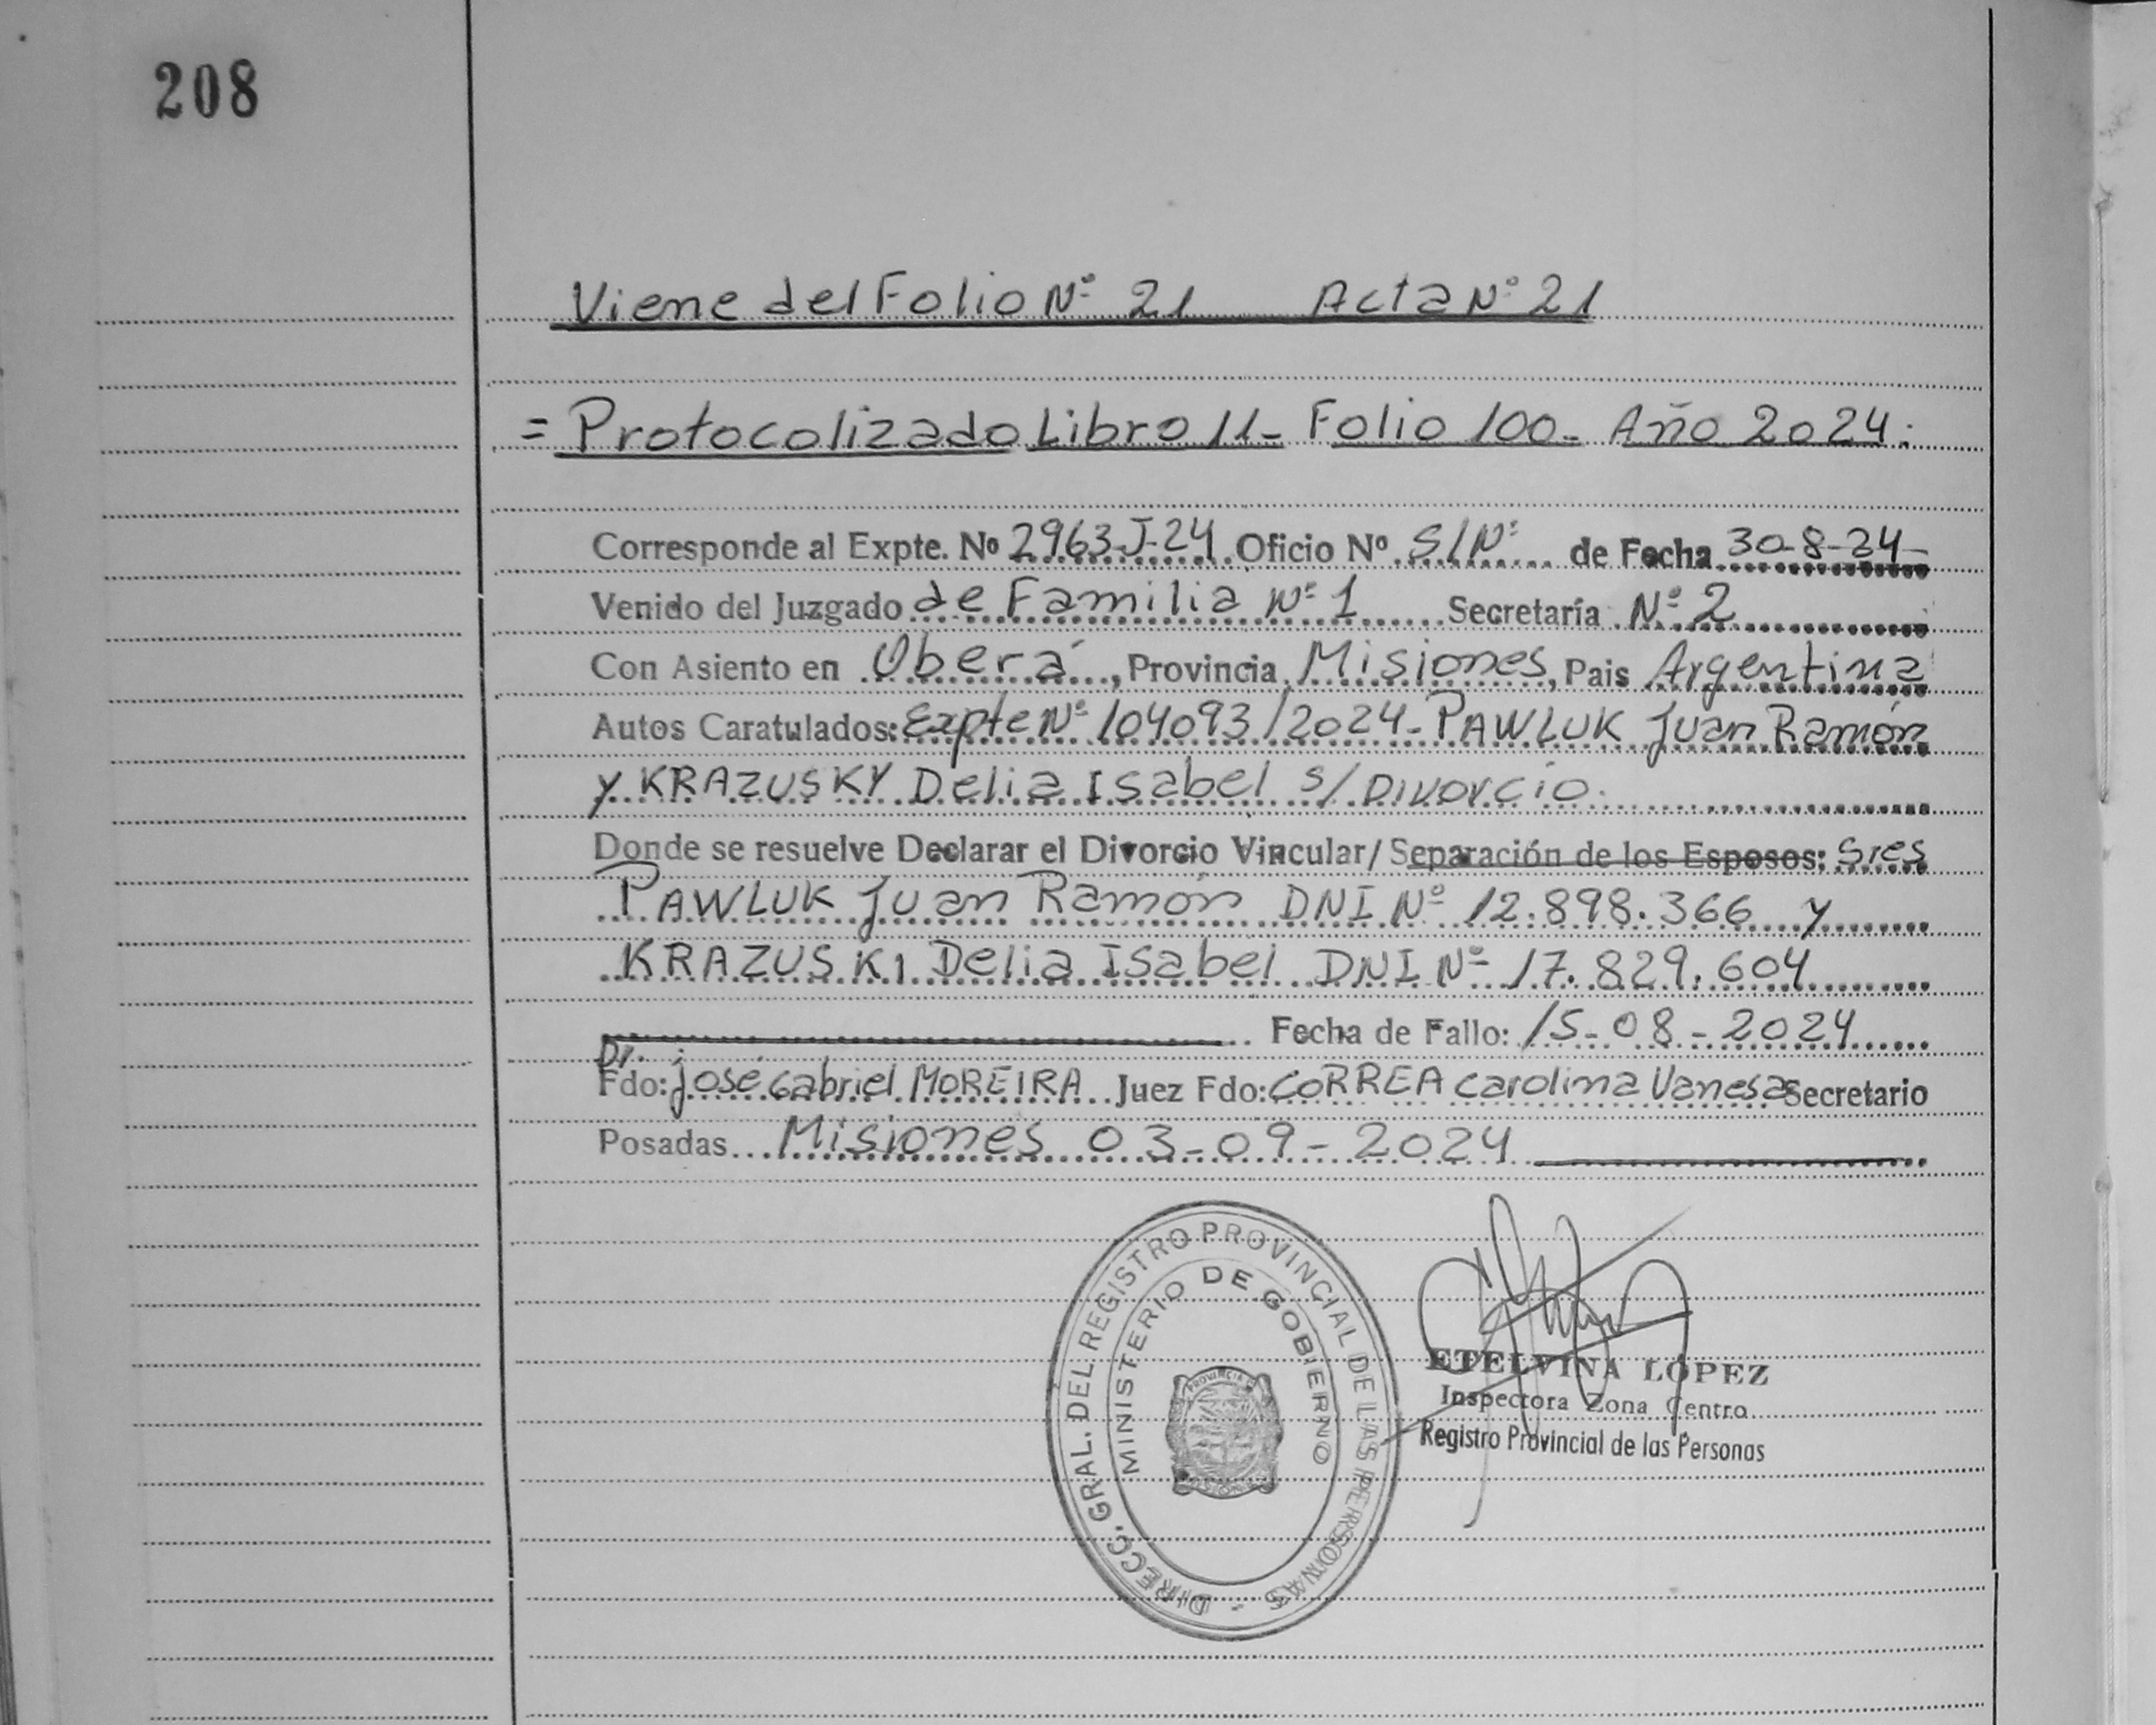 208
Viene del Folio Nº 21 Acta Nº 21
= Protocolizado Libro 11- Folio 100- Año 2024.
Corresponde al Expte. Nº 2963-J-24 Oficio Nº S/Nº de Fecha 30-8-24-
Venido del Juzgado de Familia Nº 1 Secretaría Nº 2
Con Asiento en Oberá, Provincia Misiones, Pais Argentina
Autos Caratulados: Expte Nº 104093/2024- PAWLUK Juan Ramón
y KRAZUSKY Delia Isabel s/ Divorcio.
Donde se resuelve Declarar el Divorcio Vincular/ Separación de los Esposos: Sres
PAWLUK Juan Ramón DNI Nº 12.898.366 y
KRAZUSKI Delia Isabel DNI Nº 17.829.604
Fecha de Fallo: 15-08-2024
Dr.
Fdo: José Gabriel MOREIRA Juez Fdo: CORREA Carolina Vanesa Secretario
Posadas Misiones 03-09-2024
DIRECC. GRAL. DEL REGISTRO PROVINCIAL DE LAS PERSONAS -
MINISTERIO DE GOBIERNO
PROVINCIA
MISIONES
ETELVINA LOPEZ
Inspectora Zona Centro
Registro Provincial de las Personas